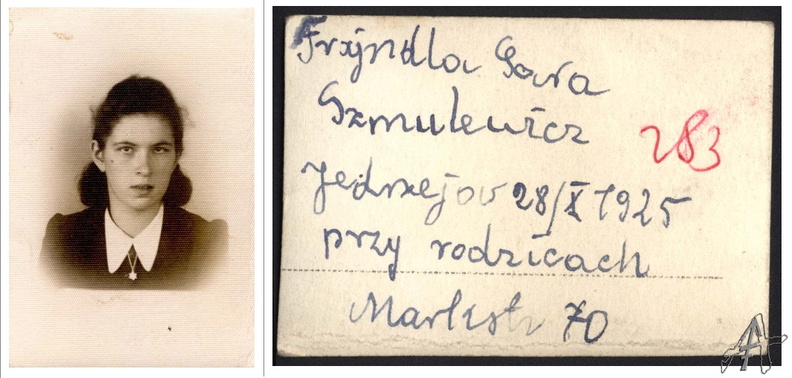 Frajndla Sara
Szmulewicz
283
Jedrzejow 28/X 1925
przy rodzicach
Markstr 70